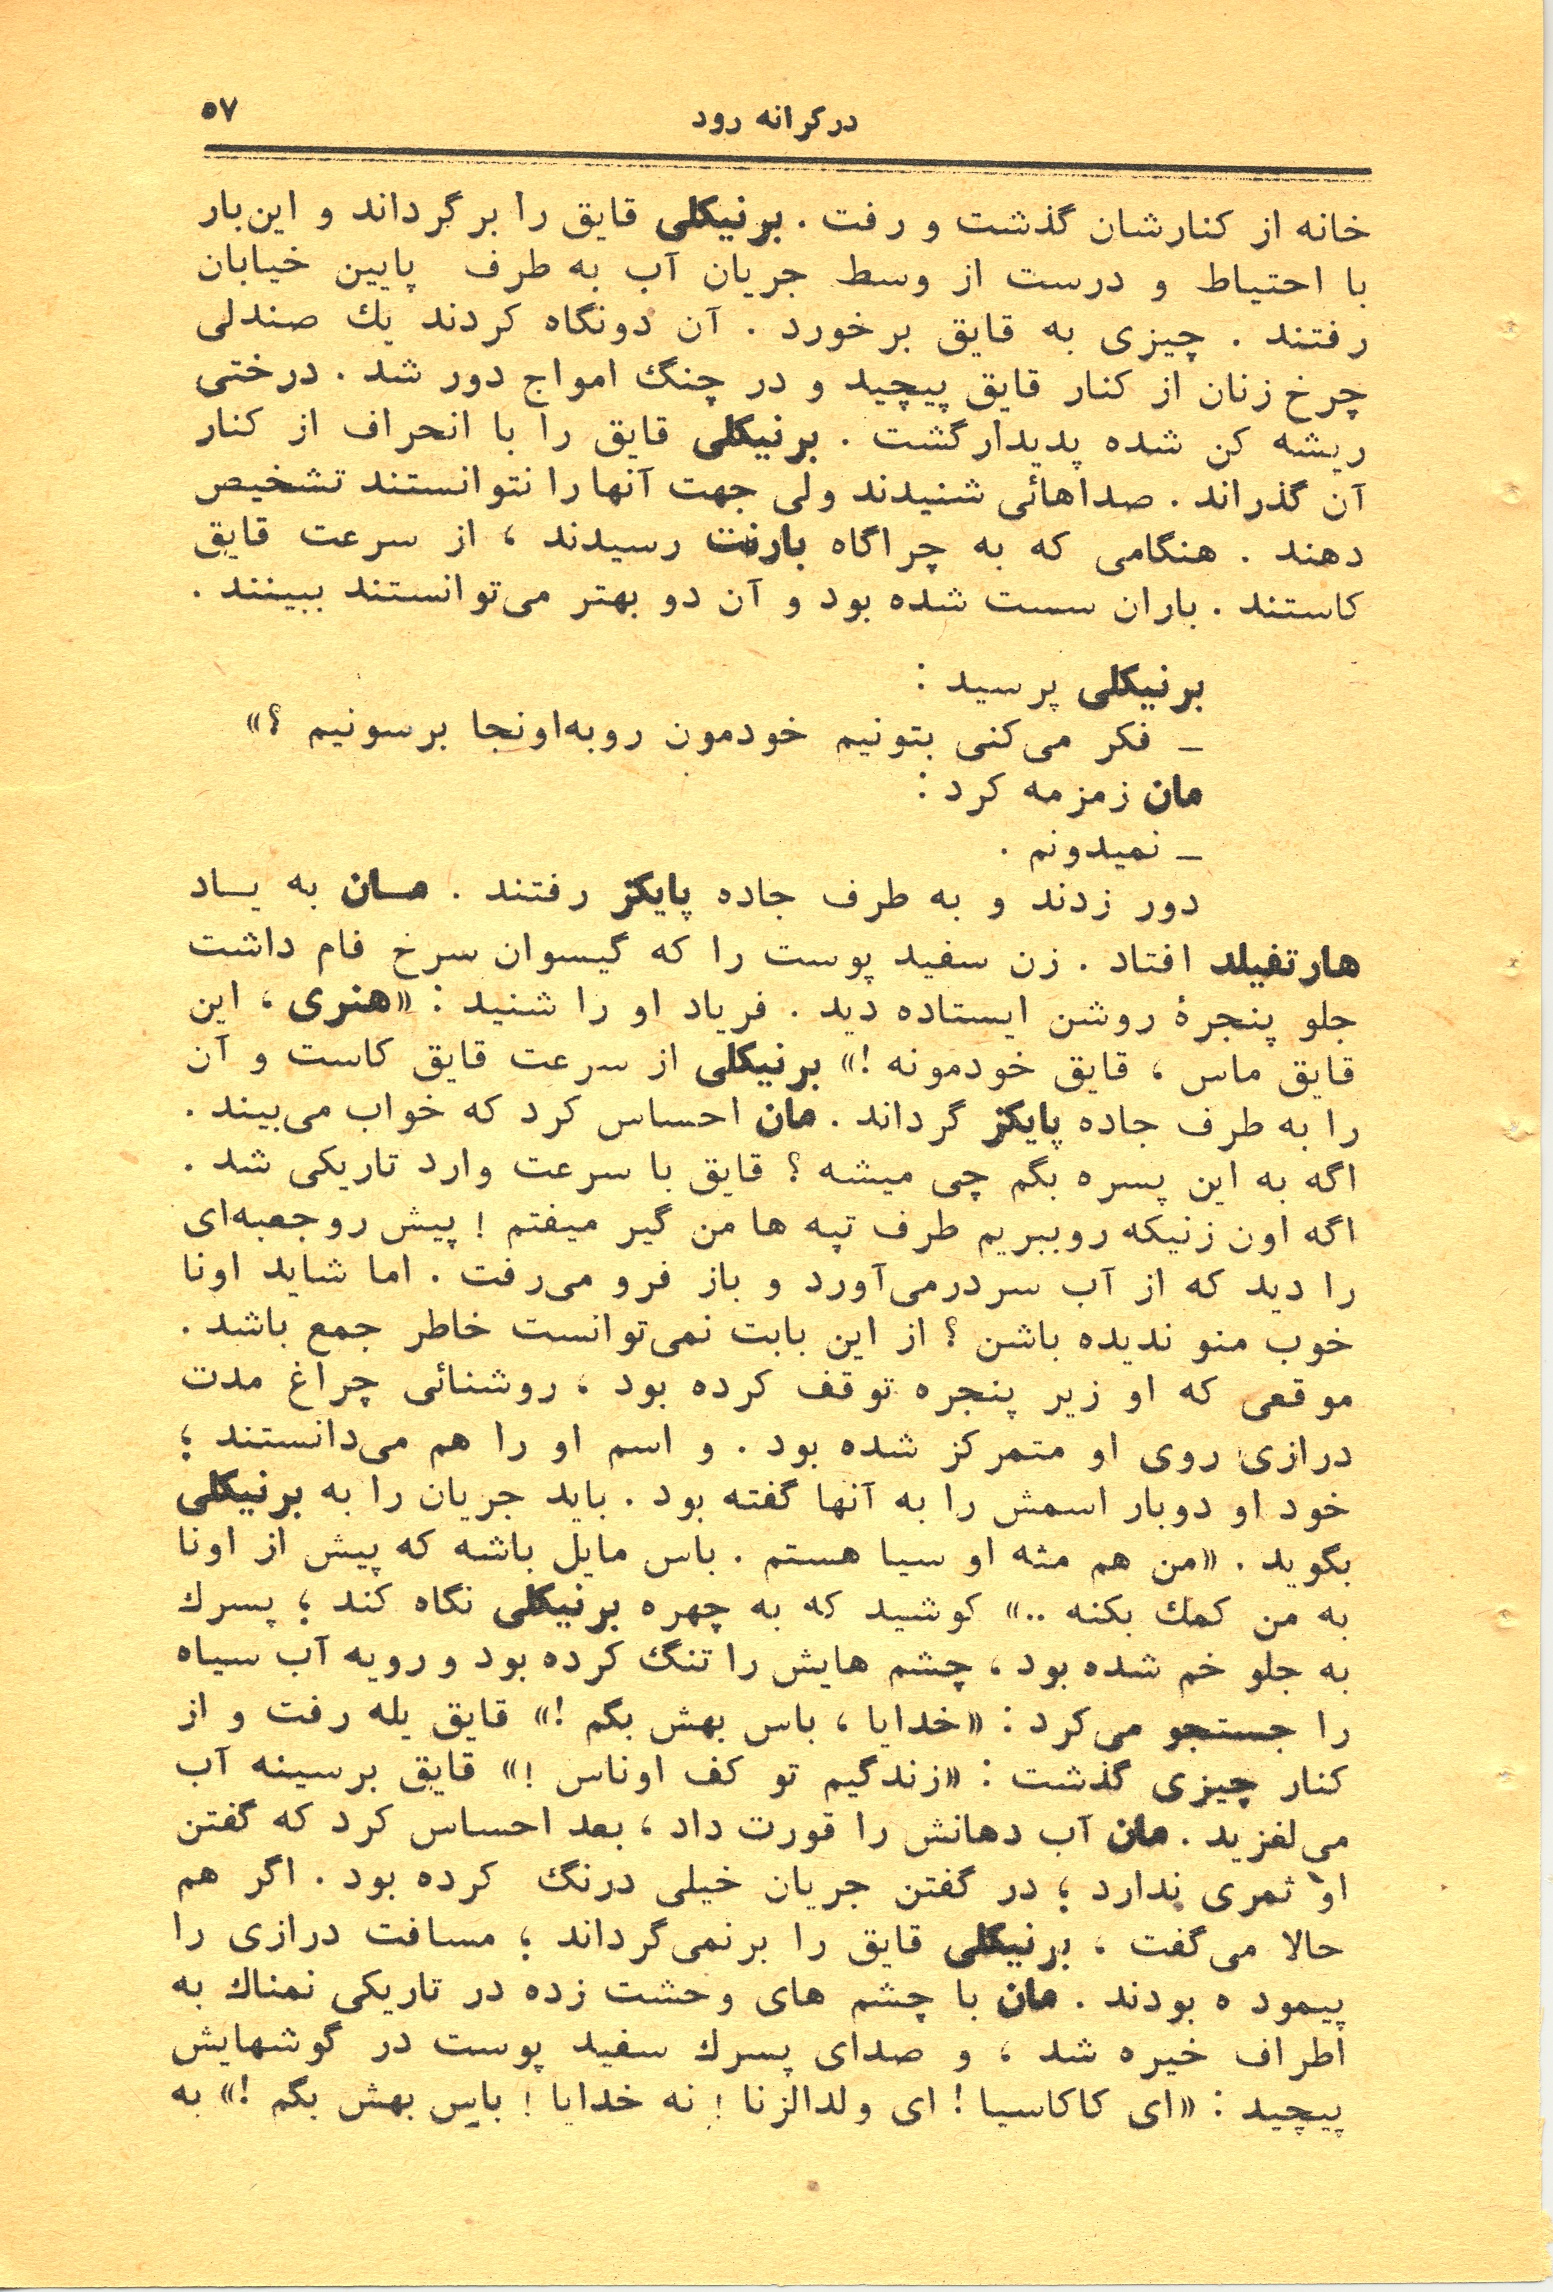 در کرانه رود
۵۷
خانه از کنارشان گذشت و رفت . برنیکلی قایق را برگرداند و این‌بار
با احتیاط و درست از وسط جریان آب به طرف پایین خیابان
رفتند . چیزی به قایق برخورد . آن دونگاه کردند یك صندلی
چرخ زنان از کنار قایق پیچید و در چنگ امواج دور شد . درختی
ریشه کن شده پدیدارگشت . برنیکلی قایق را با انحراف از کنار
آن گذراند . صداهائی شنیدند ولی جهت آنها را نتوانستند تشخیص
دهند . هنگامی که به چراگاه بارنت رسیدند ، از سرعت قایق
کاستند . باران سست شده بود و آن دو بهتر می‌توانستند ببینند .
برنیکلی پرسید :
ــ فکر می‌کنی بتونیم خودمون روبه‌اونجا برسونیم ؟»
مان زمزمه کرد :
ــ نمیدونم .
دور زدند و به طرف جاده پایکز رفتند . مــان به یــاد
هارتفیلد افتاد . زن سفید پوست را که گیسوان سرخ فام داشت
جلو پنجرهٔ روشن ایستاده دید . فریاد او را شنید : «هنری ، این
قایق ماس ، قایق خودمونه !» برنیکلی از سرعت قایق کاست و آن
را به طرف جاده پایکز گرداند . مان احساس کرد که خواب می‌بیند .
اگه به این پسره بگم چی میشه ؟ قایق با سرعت وارد تاریکی شد .
اگه اون زنیکه روببریم طرف تپه ها من گیر میفتم ! پیش رو جعبه‌ای
را دید که از آب سردرمی‌آورد و باز فرو می‌رفت . اما شاید اونا
خوب منو ندیده باشن ؟ از این بابت نمی‌توانست خاطر جمع باشد .
موقعی که او زیر پنجره توقف کرده بود ، روشنائی چراغ مدت
درازی روی او متمرکز شده بود . و اسم او را هم می‌دانستند ؛
خود او دوبار اسمش را به آنها گفته بود . باید جریان را به برنیکلی
بگوید . «من هم مثه او سیا هستم . باس مایل باشه که پیش از اونا
به من کمك بکنه ..» کوشید که به چهره برنیکلی نگاه کند ؛ پسرك
به جلو خم شده بود ، چشم هایش را تنگ کرده بود و رویه آب سیاه
را جستجو می‌کرد : «خدایا ، باس بهش بگم !» قایق یله رفت و از
کنار چیزی گذشت : «زندگیم تو کف اوناس !» قایق برسینه آب
می‌لغزید . مان آب دهانش را قورت داد ، بعد احساس کرد که گفتن
او ثمری ندارد ؛ در گفتن جریان خیلی درنگ کرده بود . اگر هم
حالا می‌گفت ، برنیکلی قایق را برنمی‌گرداند ؛ مسافت درازی را
پیمود ه بودند . مان با چشم های وحشت زده در تاریکی نمناك به
اطراف خیره شد ، و صدای پسرك سفید پوست در گوشهایش
پیچید : «ای کاکاسیا ! ای ولدالزنا ! نه خدایا ! باس بهش بگم !» به